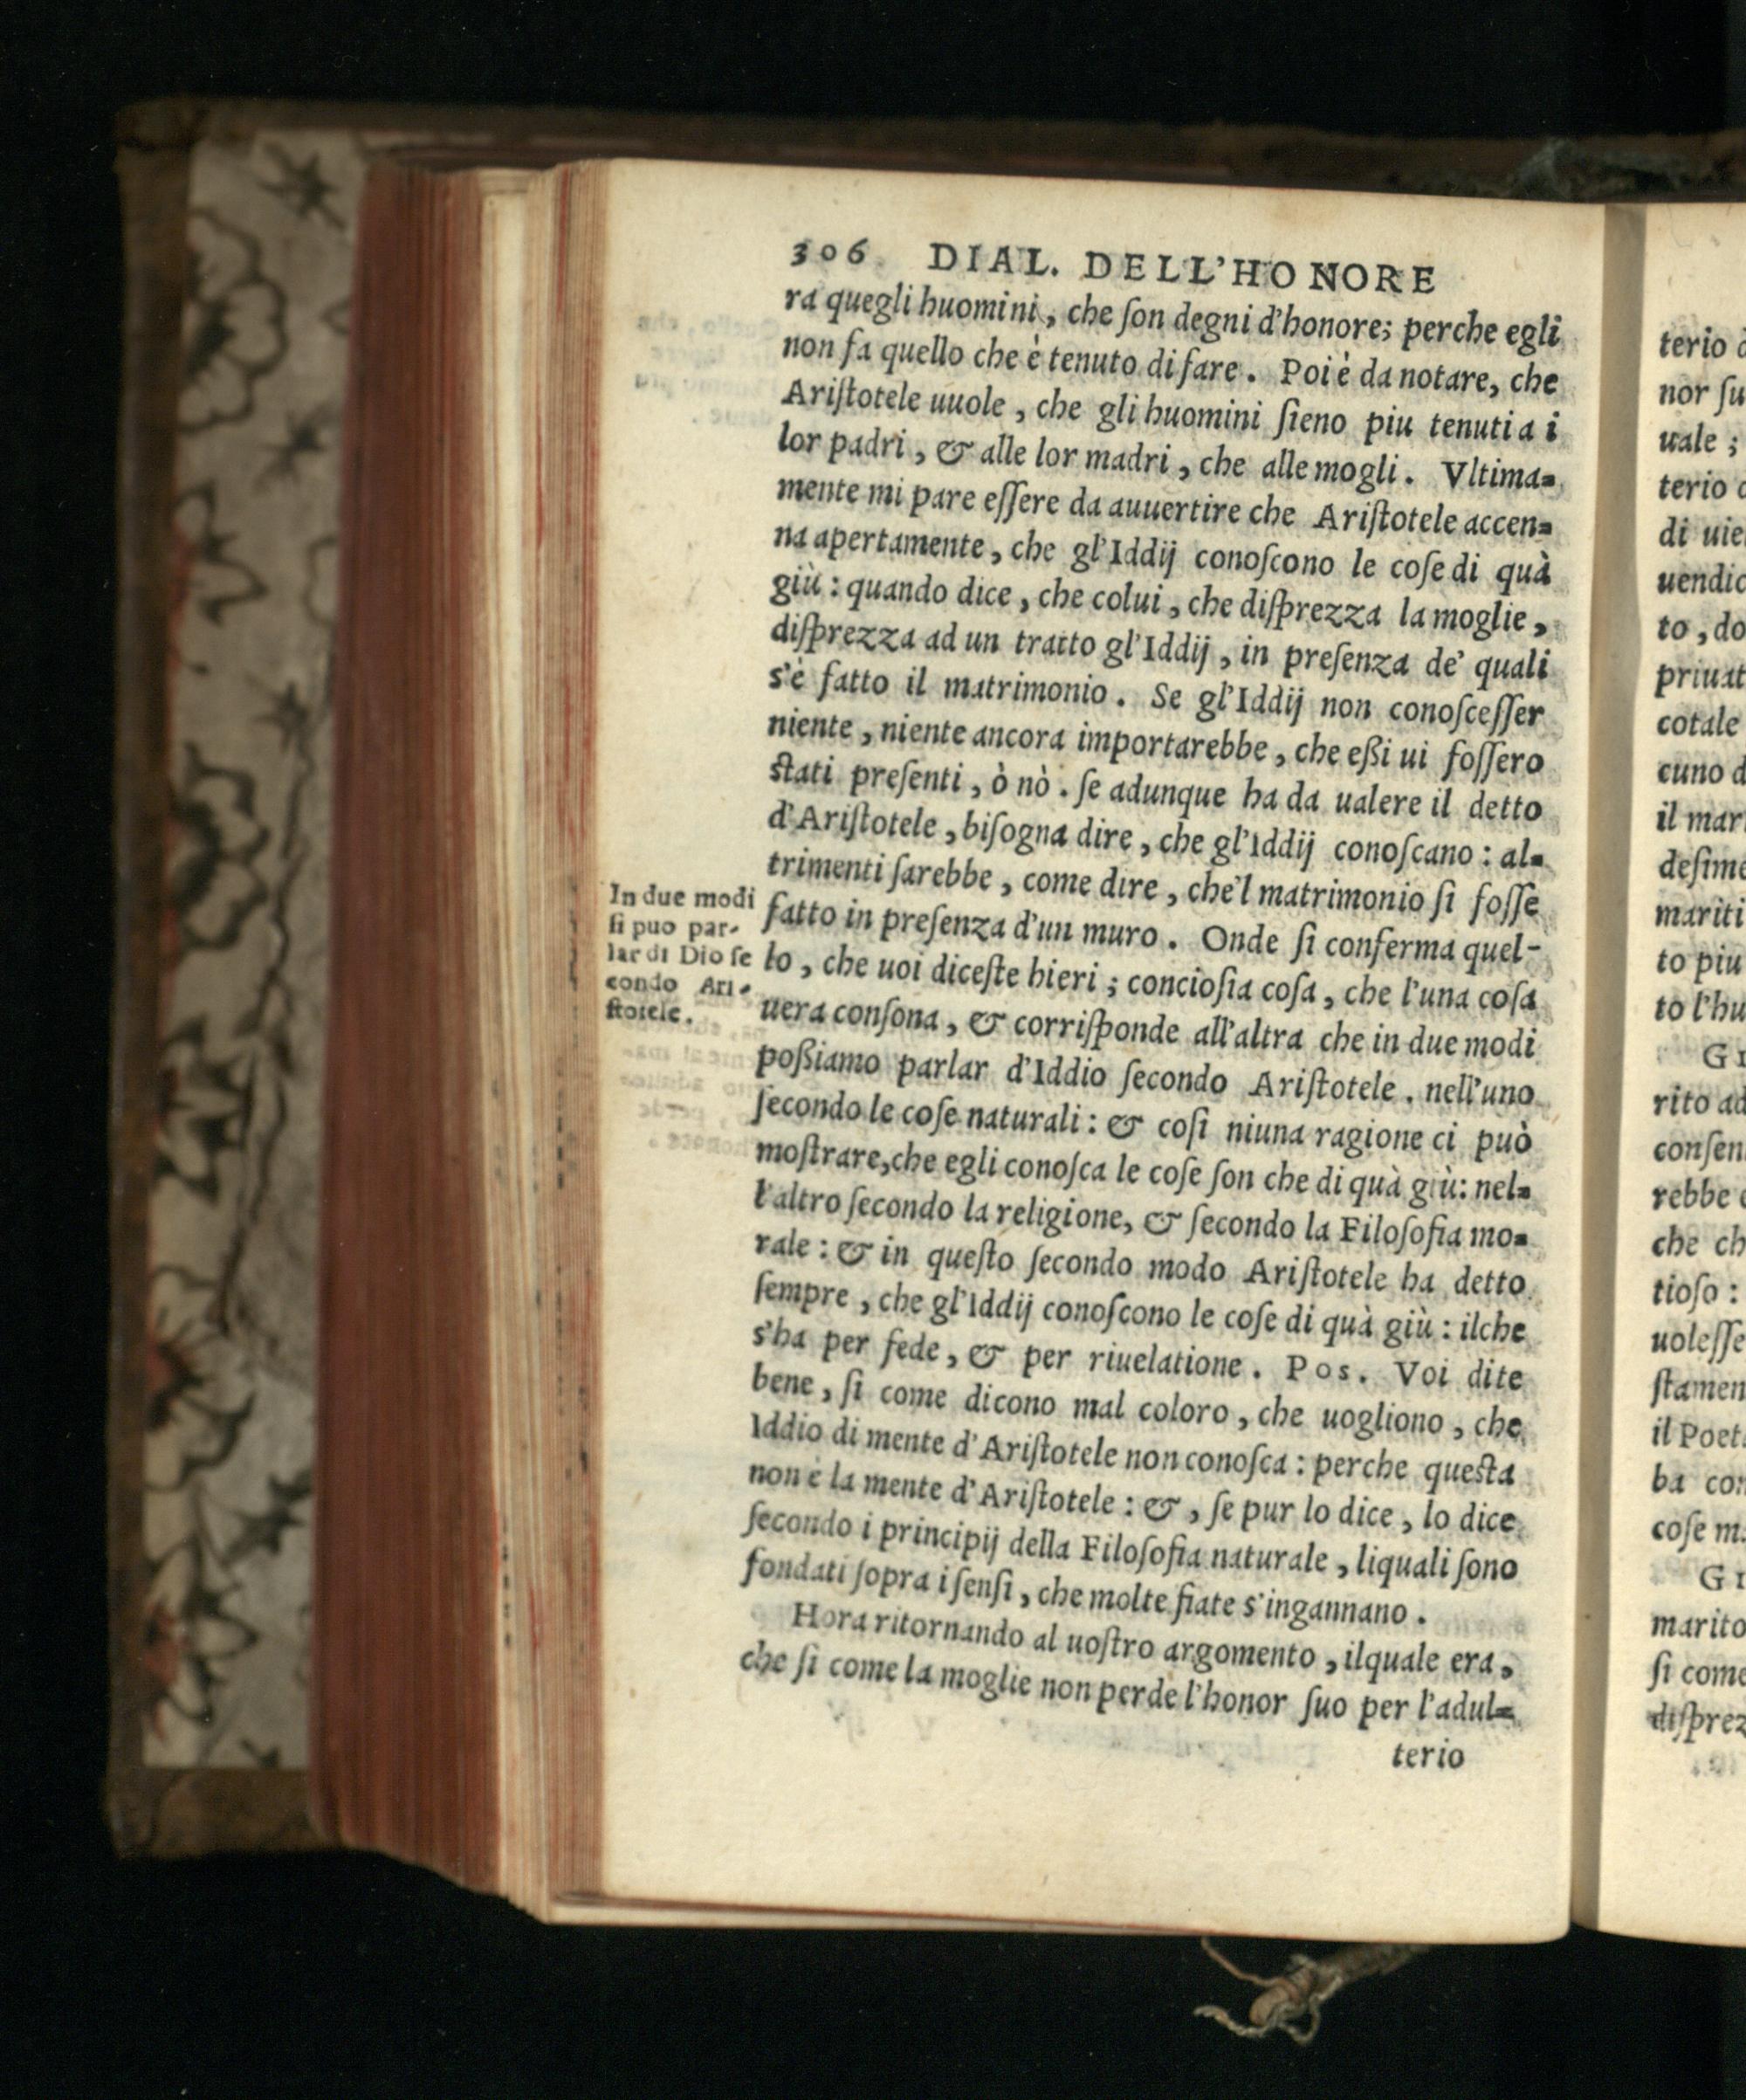 306 DIAL. DELL'HONORE
ra quegli huomini, che ſon degni d'honore; perche egli
non fa quello che è tenuto di fare. Poi è da notare, che
Ariſtotele uuole, che gli huomini ſieno piu tenuti a i
lor padri, & alle lor madri, che alle mogli. Vltima=
mente mi pare eſſere da auuertire che Ariſtotele accen=
na apertamente, che gl'Iddij conoſcono le coſe di quà
giù: quando dice, che colui, che diſprezza la moglie,
diſprezza ad un tratto gl'Iddij, in preſenza de' quali
s'è fatto il matrimonio. Se gl'Iddij non conoſceſſer
niente, niente ancora importarebbe, che eßi ui foſſero
ſtati preſenti, ò nò. ſe adunque ha da ualere il detto
d'Ariſtotele, biſogna dire, che gl'Iddij conoſcano: al=
trimenti ſarebbe, come dire, che'l matrimonio ſi foſſe
fatto in preſenza d'un muro. Onde ſi conferma quel-
lo, che uoi diceſte hieri; concioſia coſa, che l'una coſa
uera conſona, & corriſponde all'altra che in due modi
poßiamo parlar d'Iddio ſecondo Ariſtotele. nell'uno
ſecondo le coſe naturali: & coſi niuna ragione ci può
moſtrare,che egli conoſca le coſe ſon che di quà giù: nel=
l'altro ſecondo la religione, & ſecondo la Filoſofia mo=
rale: & in queſto ſecondo modo Ariſtotele ha detto
ſempre, che gl'Iddij conoſcono le coſe di quà giù: ilche
s'ha per fede, & per riuelatione. Pos. Voi dite
bene, ſi come dicono mal coloro, che uogliono, che
Iddio di mente d'Ariſtotele non conoſca: perche queſta
non è la mente d'Ariſtotele: &, ſe pur lo dice, lo dice
ſecondo i principij della Filoſofia naturale, liquali ſono
fondati ſopra i ſenſi, che molte fiate s'ingannano.
Hora ritornando al uoſtro argomento, ilquale era,
che ſi come la moglie non perde l'honor ſuo per l'adul=
terio
In due modi
ſi puo par-
lar di Dio ſe
condo Ari-
ſtotele.
terio
nor ſu
uale;
terio
di uie
uendic
to, do
priuat
cotale
cuno d
il mar
deſime
mariti
to piu
to l'hu
GI
rito ad
conſen
rebbe
che ch
tioſo:
uoleſſe
ſtamen
il Poet
ba con
coſe m
GI
marito
ſi come
diſprez